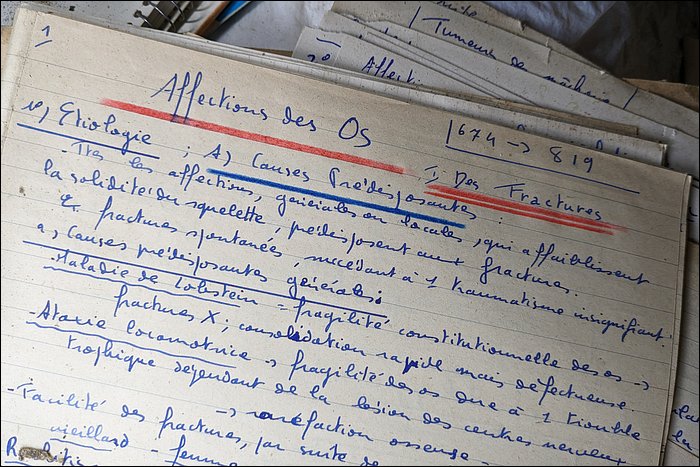 1
Affections des Os
| 674 → 819
I, Des Fractures
1°, Etiologie ; A, Causes Prédisposantes :
- Ttes les affections, générales ou locales, qui affaiblissent
la solidité du squelette, prédisposent aux fractures.
& fractures spontanées, succédant à 1 traumatisme insignifiant.
a, Causes prédisposantes générales :
- Maladie de Lobstein = fragilité constitutionnelle des os →
fractures X ; consolidation rapide mais défectueuse.
- Ataxie locomotrice → fragilité des os due à 1 trouble
trophique dépendant de la lésion des centres nerveux
→ raréfaction osseuse -
- Facilité des fractures, par suite de
vieillard - femme
Tumeurs de mâchoire
Affecti